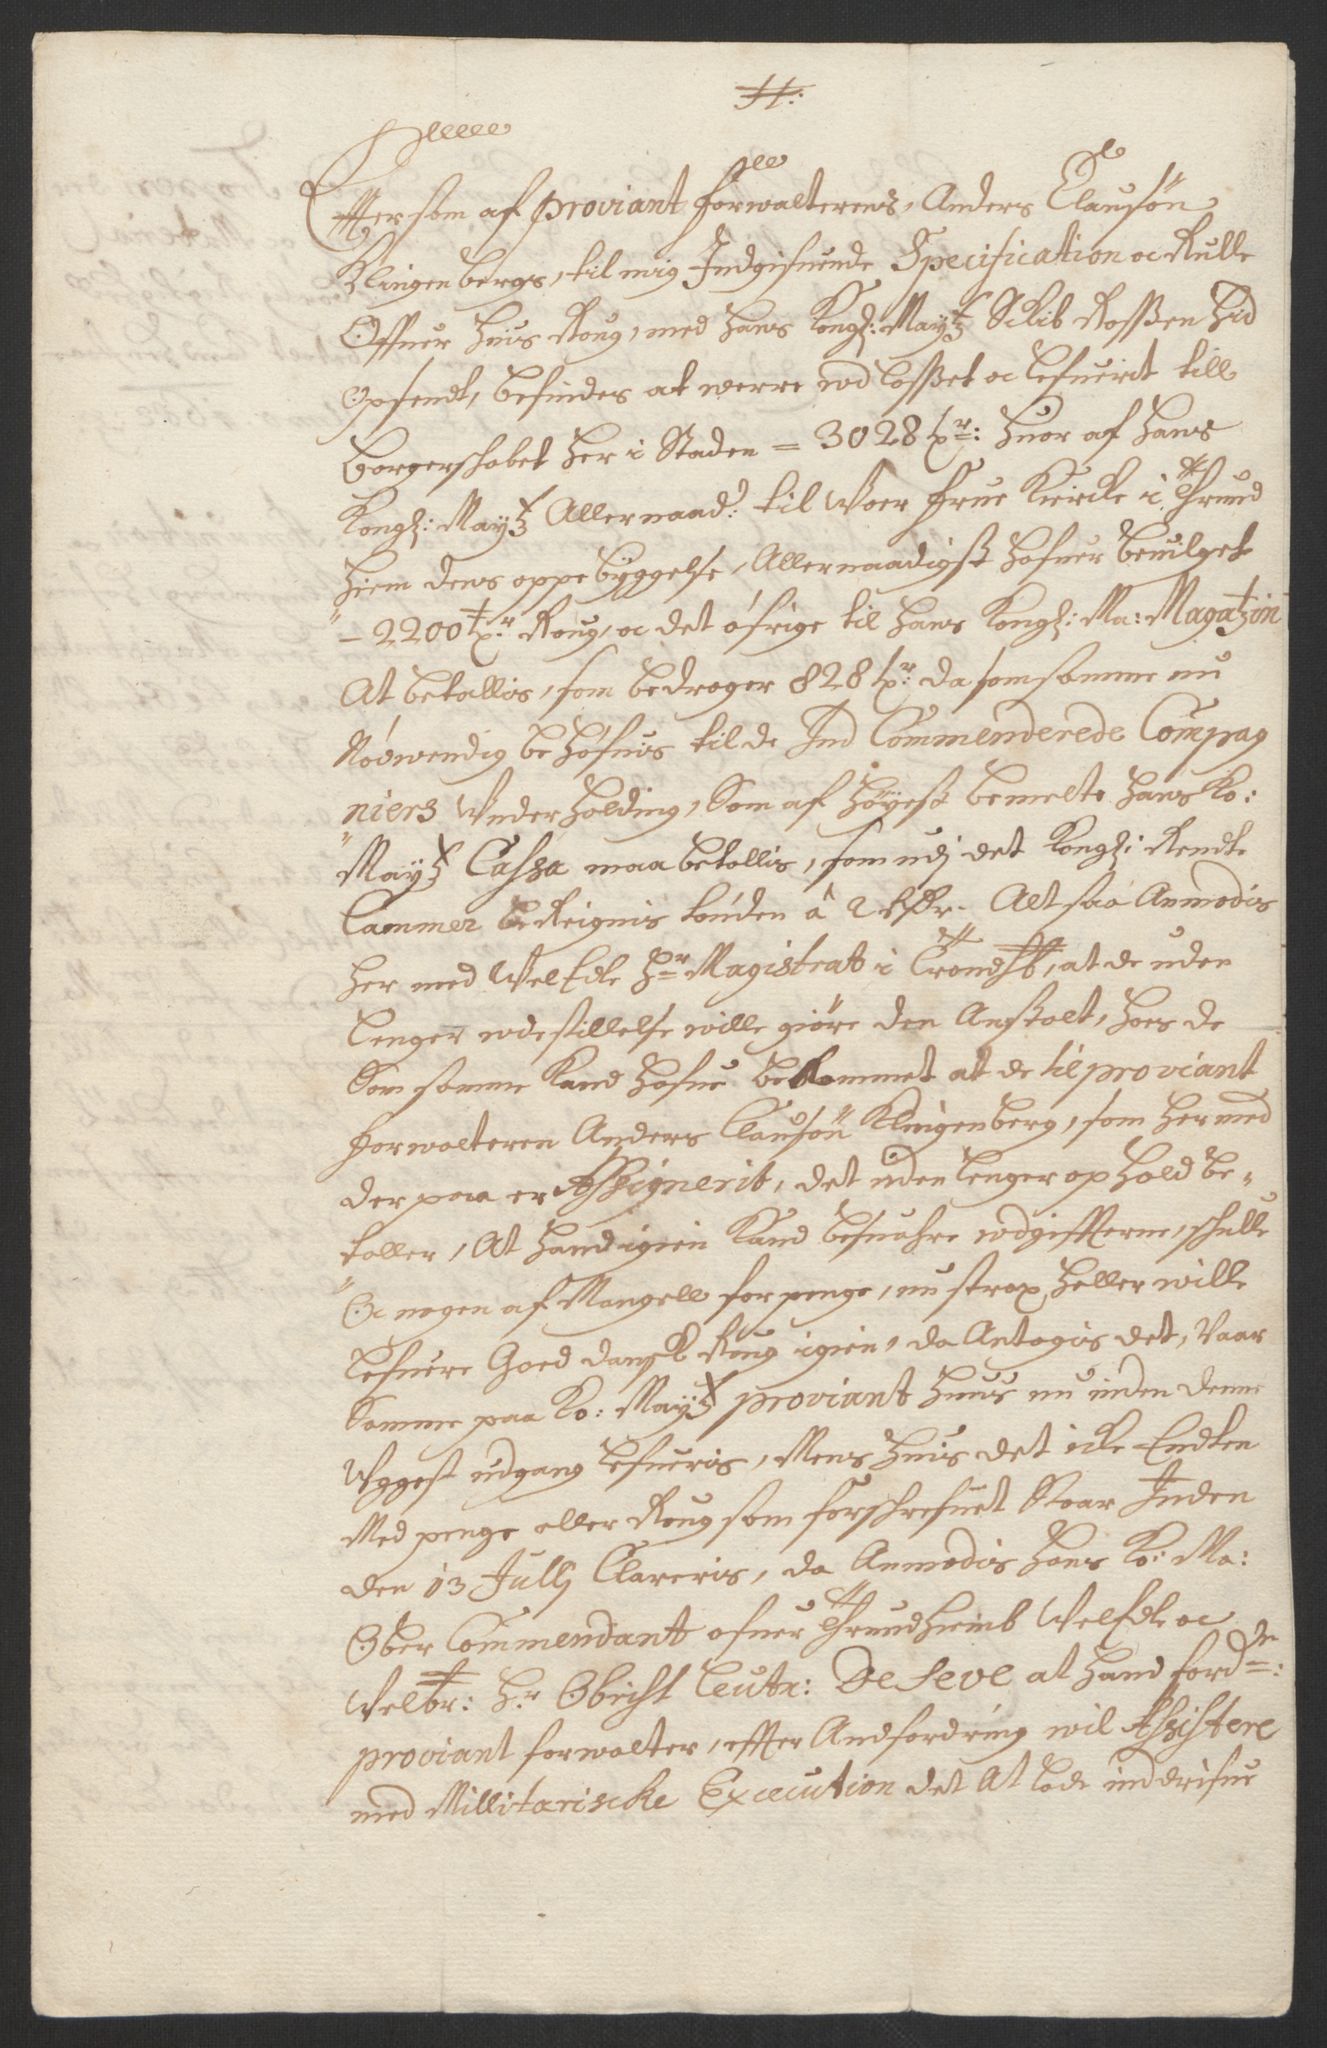 H:
Effter som af proviant forwalterens, Anders Clausøn
Klingenbergs, til mig Indgifuende Specification oc Rulle
Offuer huis Roug, med hans Kongl: Maytz Skib Rossen hid
opsendt, befindes at werre ud losset oc lefuerit till
borgerschabet her i Staden = 3028 tr: huor af hans
Kongl: Maytz Allernaad: til Woer frue Kircke i Thrund
hiem dens oppe byggelse, Allernaadigst hafuer beuilget
- 2200 tr. Roug, oc det öfrige til hans Kongl: Ma: Magatzin
At betallis, som bedrager 828 tr: da som samme nu
Nödwendig behöfuis til de Ind Commenderede Compag
niers Underholding, Som af höyest bemelte hans Ko:
Maytz Cassa maa betallis, som udj det Kongl: Rendte
Cammer bereignis tønden â 2 Rdr. Alt saa Anmodis
her med WelEdle Hr Magistrat i Trondhb, at de uden
lenger udestillelse wille giöre den Anstalt, hoes de
Som samme kand hafue bekommet at de til proviant
forwalteren Anders Clausøn Klingenberg, som hermed
der paa er Assignerit, det uden lenger ophold be-
taller, At hand igien kand besuahre udgiffterne, schulle
Oc nogen af Mangell for penge, nu strax heller wille
lefuere Goed dansk Roug igien, da Antagis det, Naar
Samme paa Ko: Maytz proviant huus nu inden denne
Uggest udgang lefueris, Mens huis det icke Endten
Med penge eller Roug som forschrefuet Staar Inden
den 13 Julij Clareris, da Anmodis hans Ko: Ma:
Ober Commendant ofuer Thrundhiemb WelEdle oc
Welbr: Hr Obrist Leutn: De Seve at hand fordne:
proviant forwalter, effter Andfordring wil Assistere
med Millitariscke Execution det At lade inddrifue